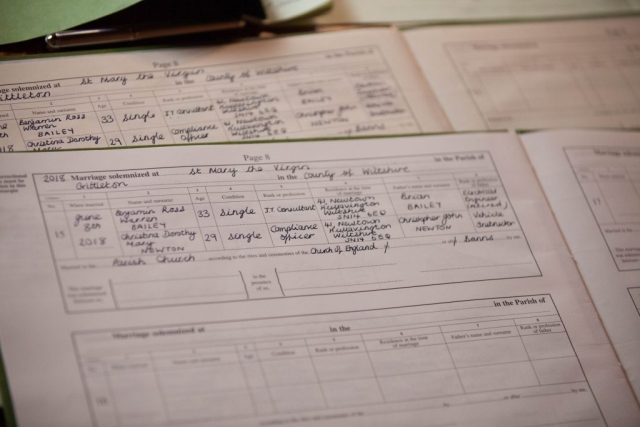 Page 8
in the Parish of
Marriage solemnized at St Mary the Virgin in the County of Wiltshire
Name and surname Age Condition
Benjamin Ross 33 Single IT Consultant 41 Newtown Brian
Warren
BAILEY BAILEY
Christina Dorothy 29 Single Compliance Christopher John
Officer NEWTON
Page 8
2018 Marriage solemnized at St Mary the Virgin in the Parish of
Grittleton in the County of Wiltshire
No. When married Name and surname Age Condition Rank or profession Residence at the time of marriage Father's name and surname Rank or profession of father
15 June 8th 2018
Benjamin Ross Warren BAILEY 33 Single IT Consultant 41 Newtown Hullavington Wiltshire SN14 6EQ Brian BAILEY Electrical Engineer (retired)
Christina Dorothy Mary NEWTON 29 Single Compliance Officer 41 Newtown Hullavington Wiltshire SN14 6EQ Christopher John NEWTON Vehicle Instructor
Married in the Parish Church according to the rites and ceremonies of the Church of England by Banns by me,
This marriage was solemnized between us, in the presence of us,
Marriage solemnized at in the in the Parish of
No. When married Name and surname Age Condition Rank or profession Residence at the time of marriage Father's name and surname Rank or profession of father